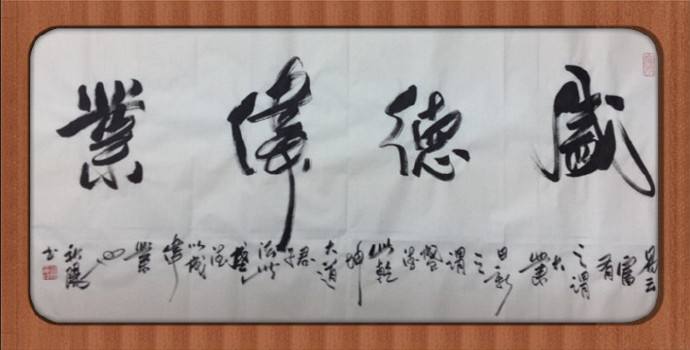 盛德偉業
易云富有之謂大業日新之謂盛德此乾坤大道君子法此盛德以成偉業